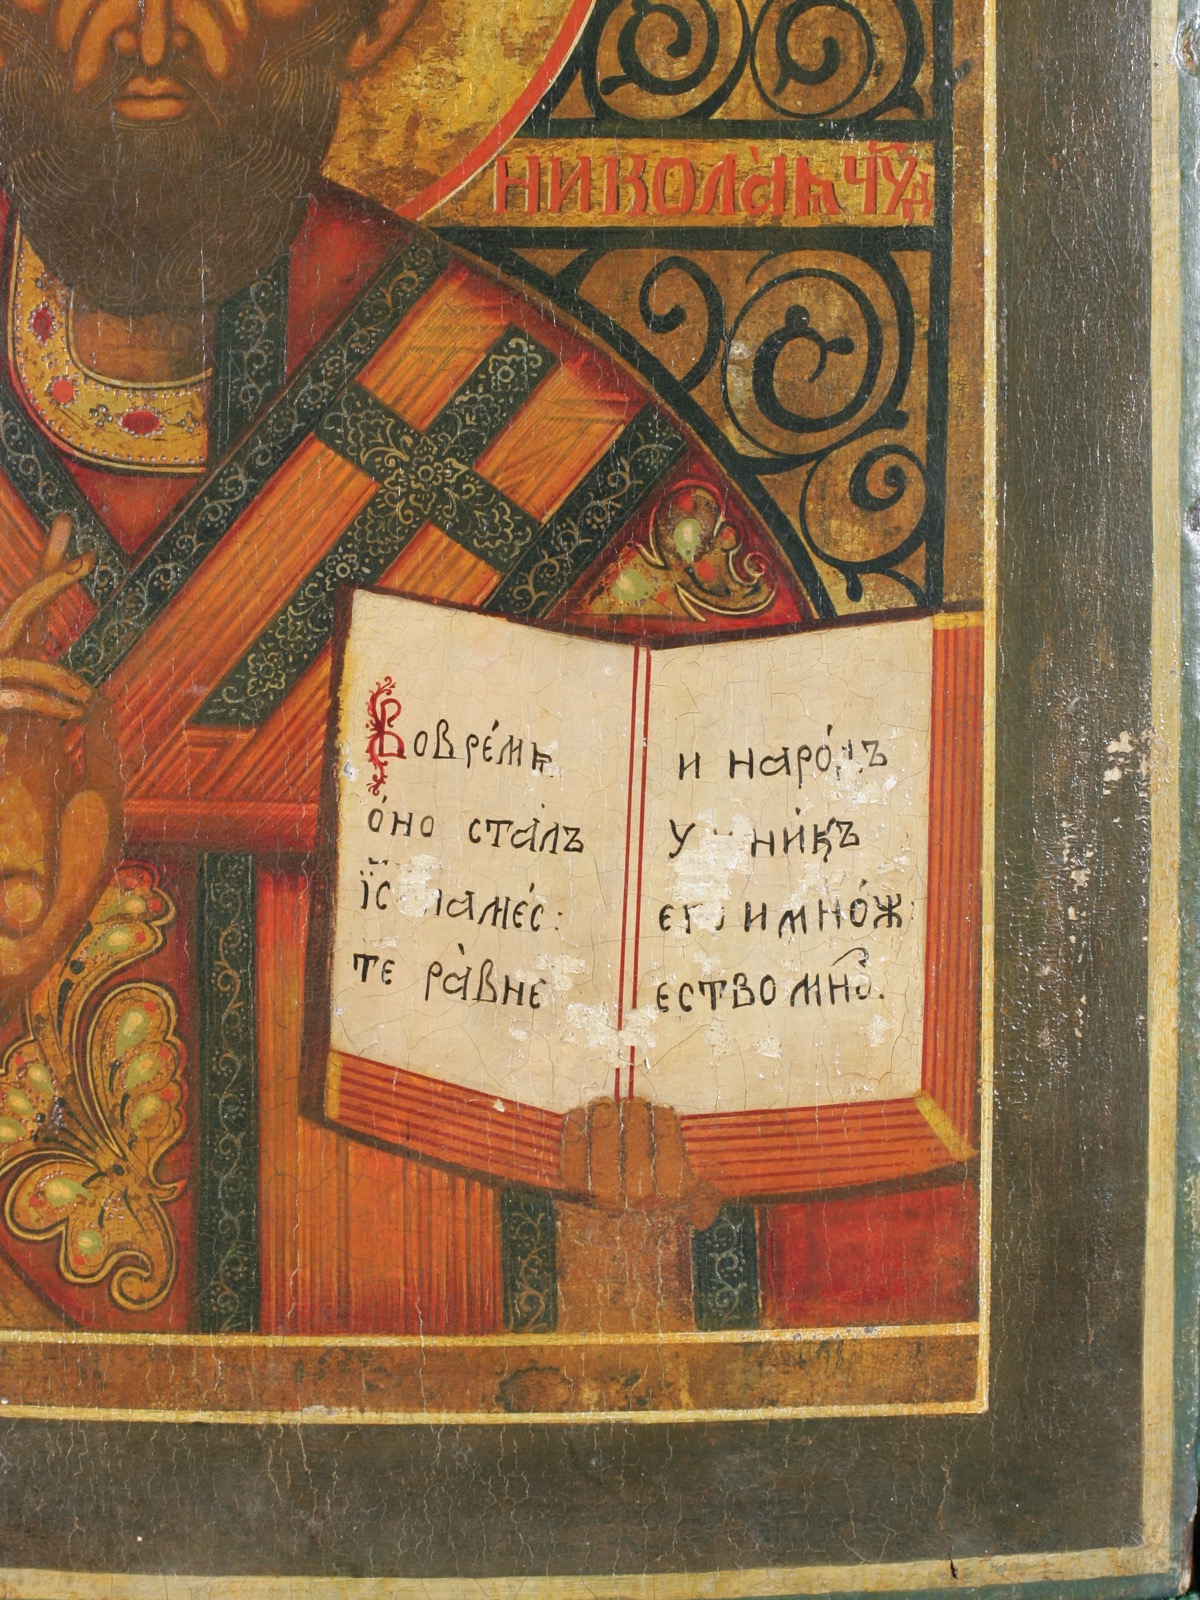 НИКОЛА́Ѧ ЧꙊ҃Д
Вовре́мѧ
о́но ста́лъ
і҃с мѣ́с:
те ра́вне
и наро́дъ
ни́къ
его и мно́ж
ество мно́.